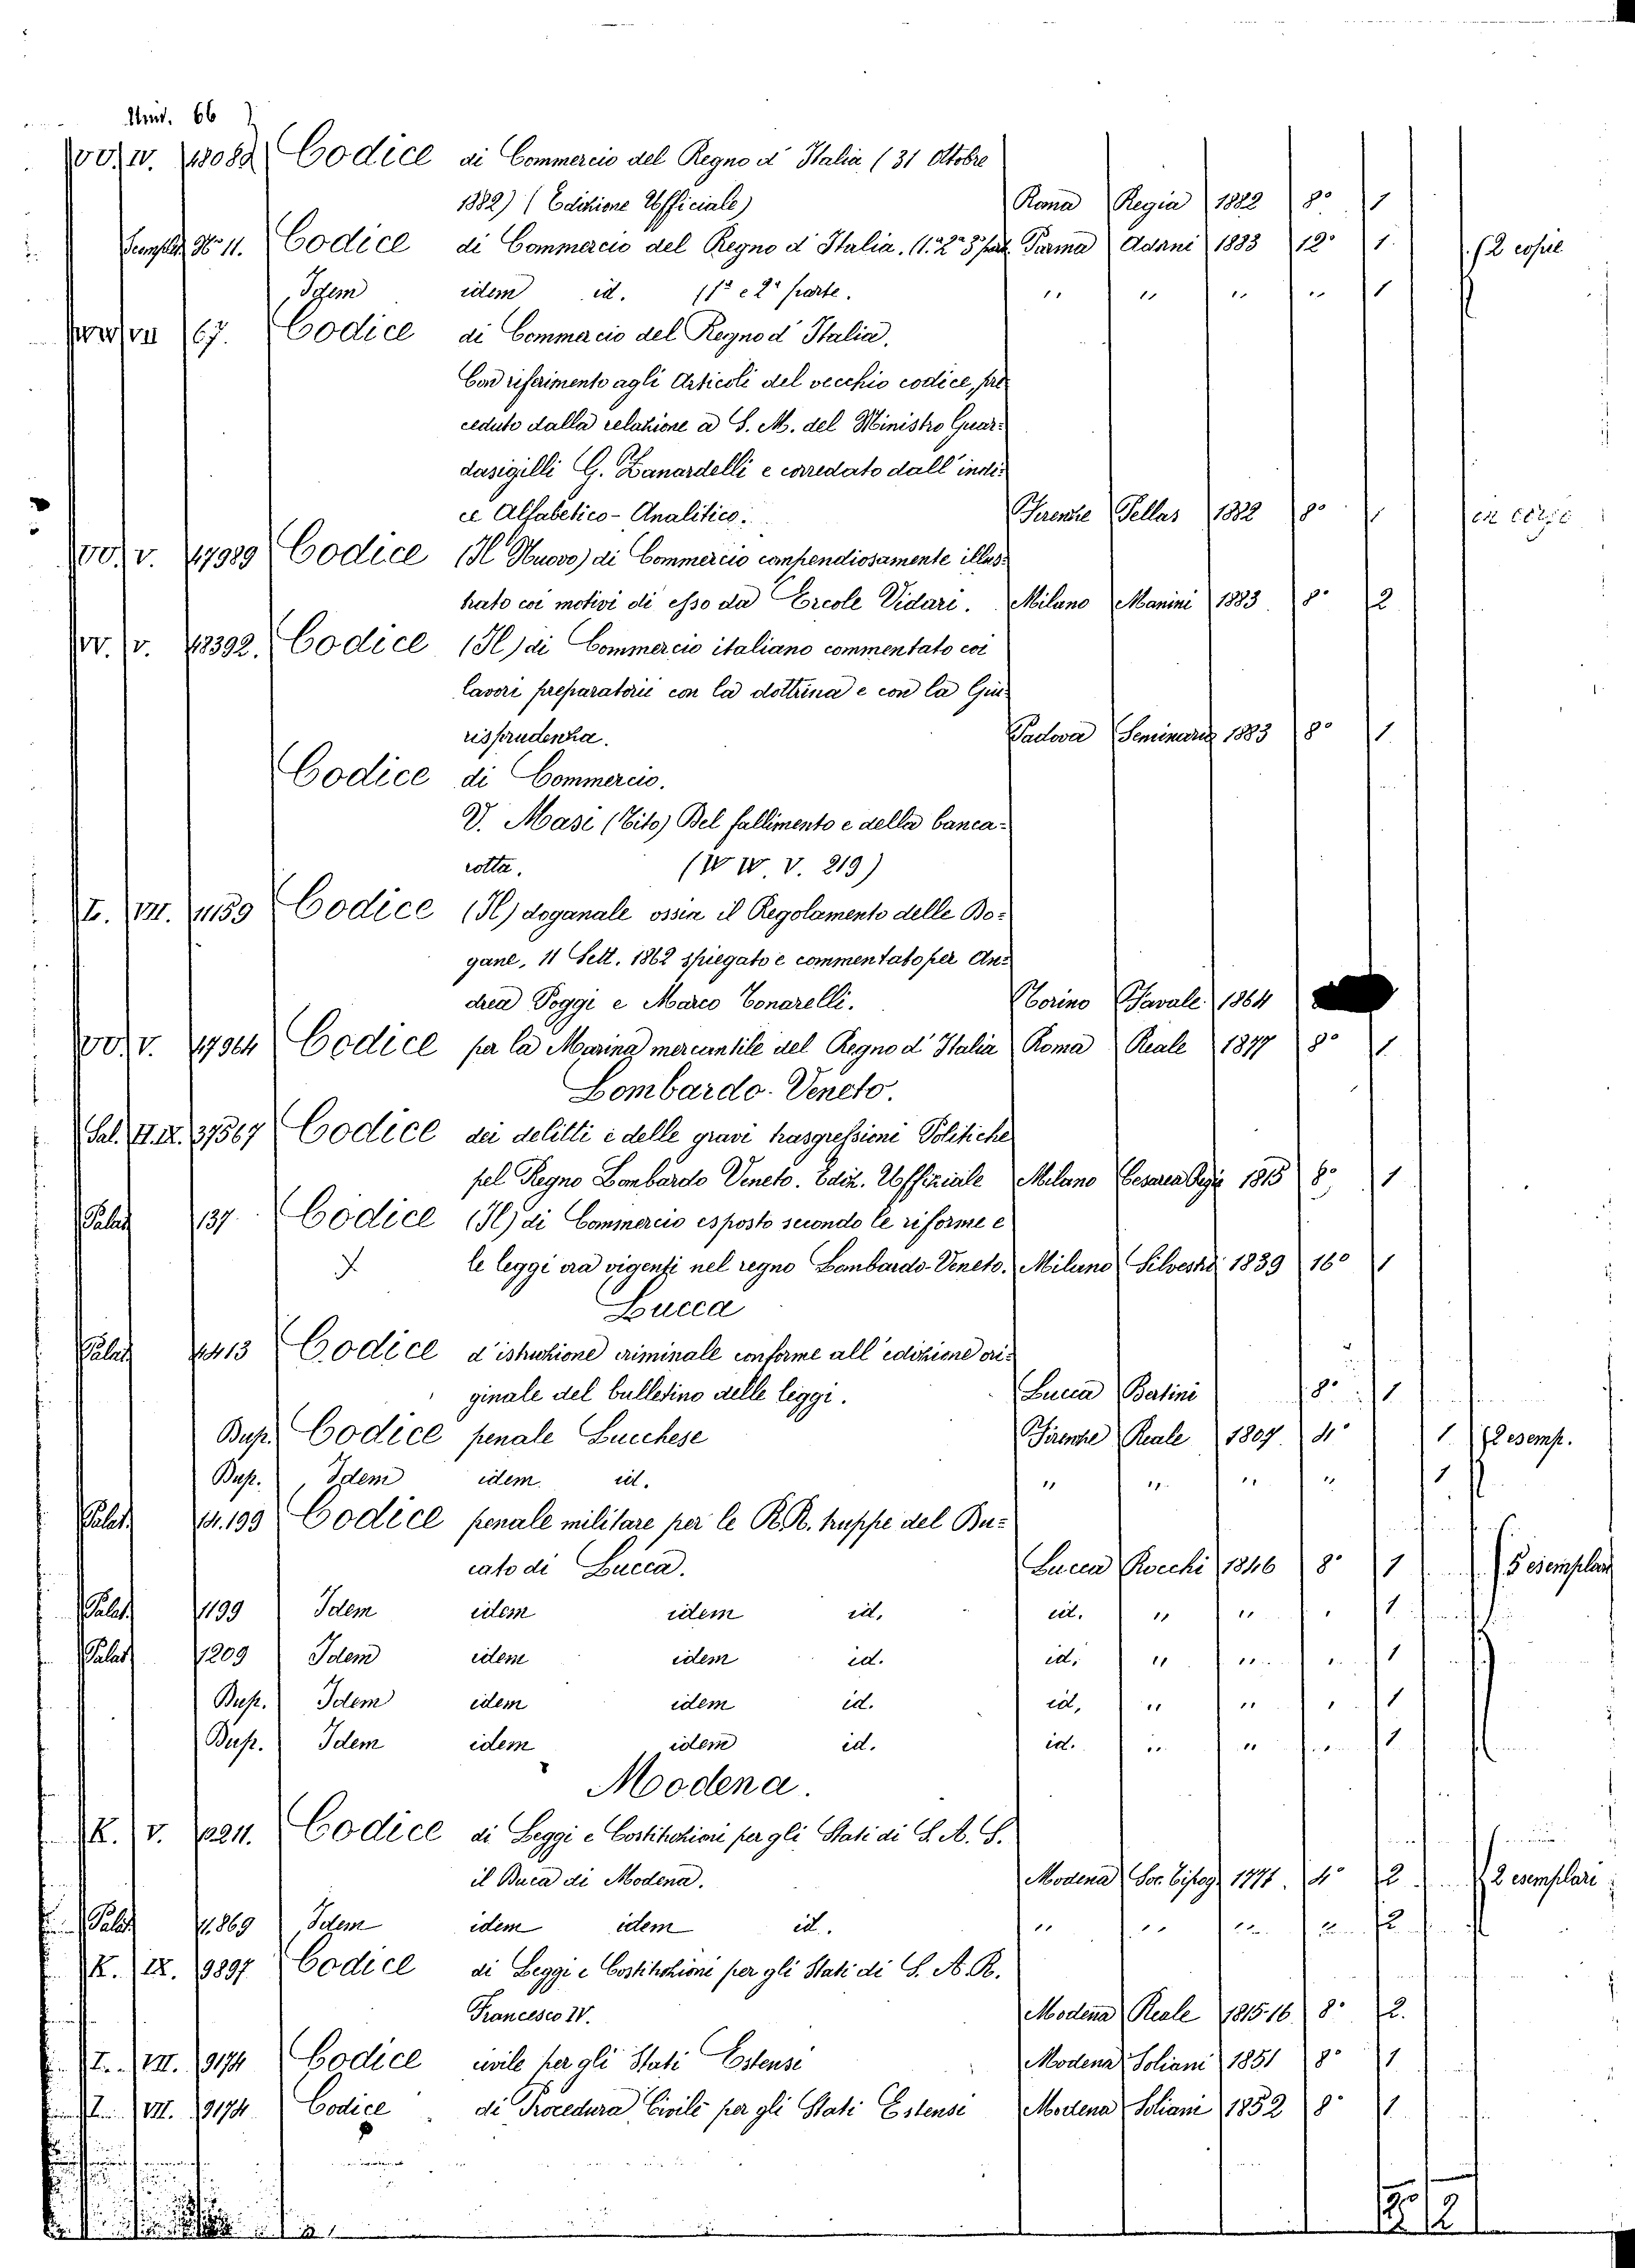 66
IV. 18082 Codice di Commercio del Regno d' Italia (31 Ottobre
1882) (Edizione Ufficiale) Roma Regia 1882 8° 1
No 11. Codice di Commercio del Regno d' Italia. (1.a 2a 3a part. Parma Adorni 1883 12° 1. (2 copie
Idem idem id. (1a e 2a parte. " " " " 1
67. Codice di Commercio del Regno d' Italia.
Con riferimento agli Articoli del vecchio codice, pre-
ceduto dalla relazione a S. M. del Ministro Guar-
dasigilli G. Zanardelli e corredato dall' indi-
ce Alfabetico-Analitico. Firenze Pellas 1882 8° 1
V. 17989 Codice (Il Nuovo) di Commercio compendiosamente illus-
trato coi motivi di esso da Ercole Vidari. Milano Manini 1883 8° 2
V. 18392. Codice (Il) di Commercio italiano commentato coi
lavori preparatorii con la dottrina e con la Giu-
risprudenza. Padova Seminario 1883 8° 1
Codice di Commercio.
V. Masi (Tito) Del fallimento e della banca-
rotta. (IV IV. V. 219)
L. VII. 11159 Codice (Il) doganale ossia il Regolamento delle Do-
gane, 11 Sett. 1862 spiegato e commentato per An-
drea Poggi e Marco Tonarelli. Torino Favale 1864
V. 17964 Codice per la Marina mercantile del Regno d' Italia Roma Reale 1877 8° 1
Lombardo-Veneto.
Sal. II. IX. 37567 Codice dei delitti e delle gravi trasgressioni Politiche
pel Regno Lombardo Veneto. Ediz. Uffiziale Milano Cesarea Regia 1815 8° 1
Palat 137 Codice (Il) di Commercio esposto secondo le riforme e
le leggi ora vigenti nel regno Lombardo-Veneto. Milano Silvestri 1839 16° 1
Lucca
Palat 4413 Codice d'istruzione criminale conforme all' edizione ori-
ginale del bulletino delle leggi. Lucca Bertini 8° 1
Dup. Codice penale Lucchese Firenze Reale 1807 4° 1 (2 esemp.
Dup. Idem idem id. " " " " 1
Palat. 14.199 Codice penale militare per le R.R. truppe del Du-
cato di Lucca. Lucca Rocchi 1846 8° 1 5 esemplari
Palat. 1199 Idem idem idem id. id. " " " 1
Palat 1209 Idem idem idem id. id. " " " 1
Dup. Idem idem idem id. id. " " " 1
Dup. Idem idem idem id. id. " " " 1
Modena.
K. V. 2211. Codice di Leggi e Costituzioni per gli Stati di S. A. S.
il Duca di Modena. Modena Soc. Tipog. 1771. 4° 2 2 esemplari
Palat 11.869 Idem idem idem id. " " " " 2
K. IX. 9897 Codice di Leggi e Costituzioni per gli Stati di S. A. R.
Francesco IV. Modena Reale 1815-16 8° 2.
L. VII. 9174 Codice civile per gli Stati Estensi Modena Soliani 1851 8° 1
L. VII. 9174 Codice di Procedura Civile per gli Stati Estensi Modena Soliani 1852 8° 1